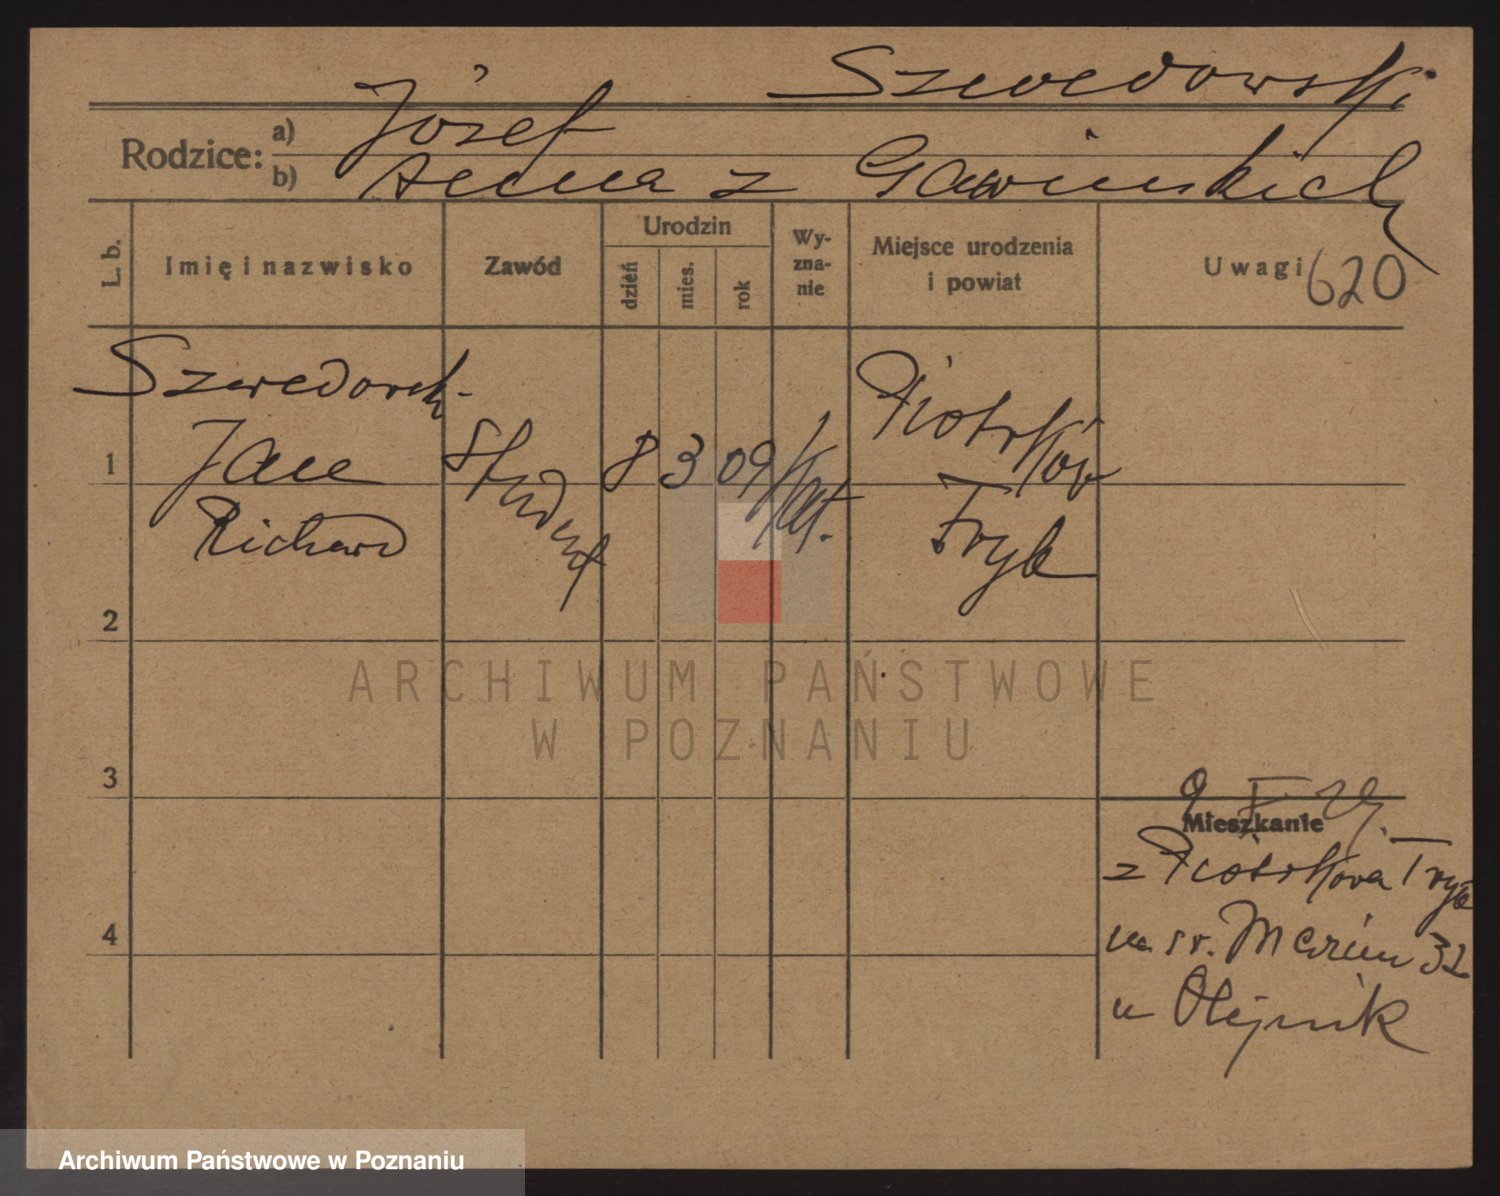 Szwedowski
Rodzice: a) Józef
b) Anna z Gawinskich
L. b. Imię i nazwisko Zawód Urodzin dzień mies. rok Wy-zna-nie Miejsce urodzenia i powiat Uwagi 620
Szwedowsk-
1 Jan Student 8 3 09 Kat. Piotrków
Richard Tryb
2
ARCHIWUM PAŃSTWOWE
W POZNANIU
3
9 X 29.
Mieszkanie
z Piotrkowa Tryb
4 na sv. Marcin 32
u Olejnik
Archiwum Państwowe w Poznaniu